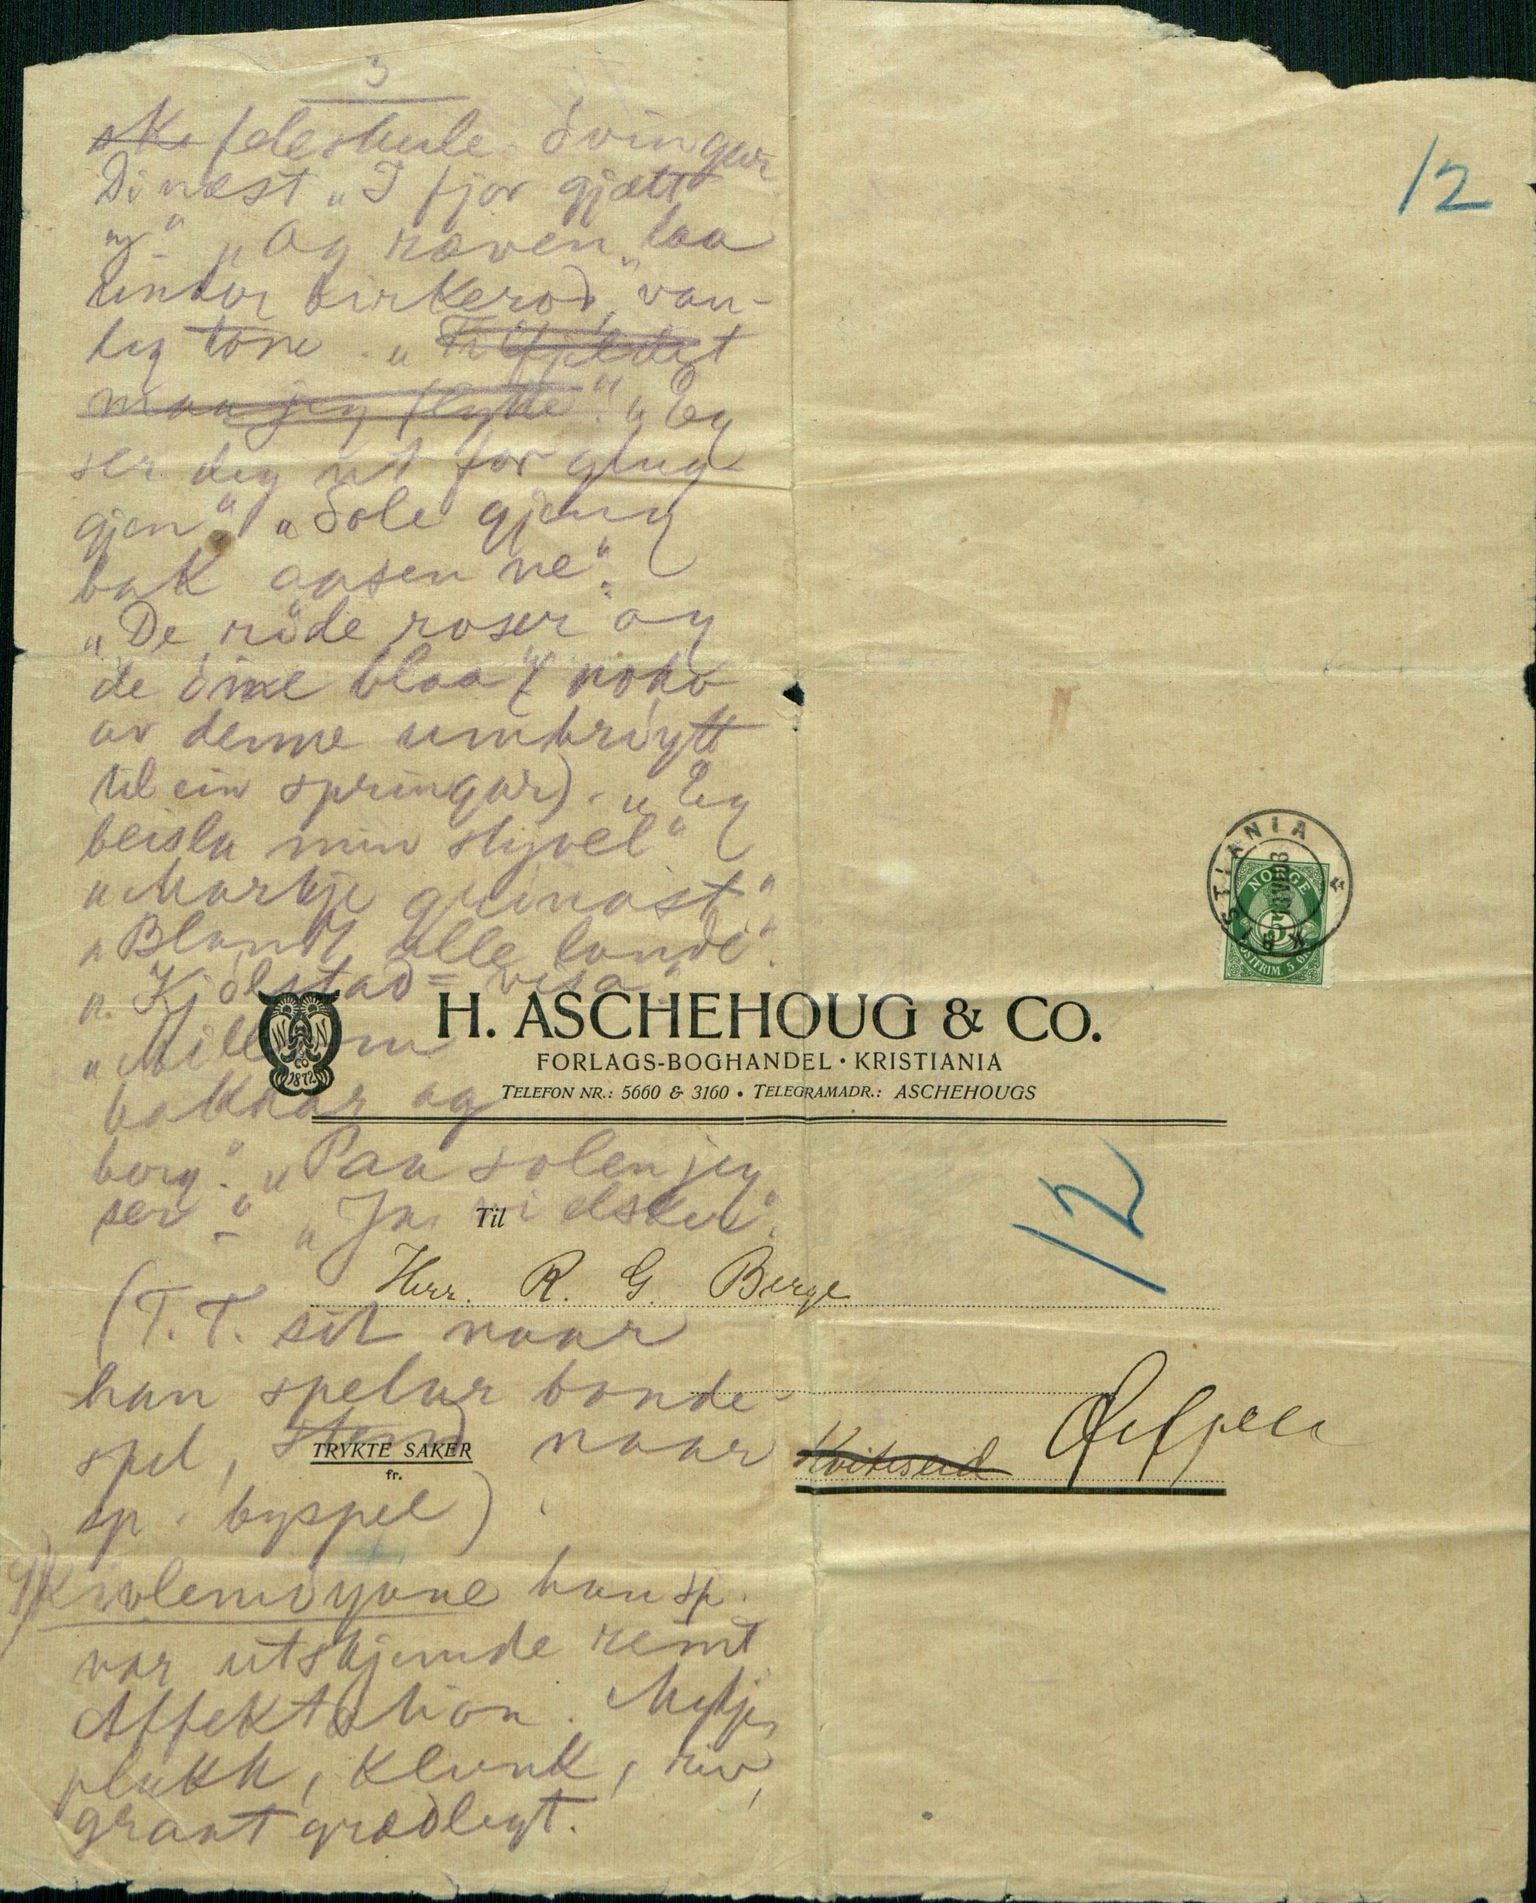 3
feleskule. Svingar
Dinæst „I fjor gjætt
eg." „Og ræven laa
under birkerod," van-
leg tone. „Til fjeldet
maa jeg flytte". „Eg
ser deg ut for glug-
gjen". „Sole gjeng
bak aasen ne".
„De røde roser og
de öine blaa"
av denne umbrøytt
til ein springar). „Eg
beisla min styvel"
„Markje grønast"
„Blandt alle lande".
„Kjölstad-visa".
„Millom
bakkar og
berg". „Paa solen jeg
ser" - „Ja, vi elsker".
(T.T. sit naar
han spelar bonde-
spel, stend naar
sp. byspel).
Krolemöyane han sp.
var utskjemde reint
Affektation. Mykje
plukk, klunk, riv,
grant grædlegt.
12
KRISTIANIA
NORGE
5
POSTFRIM 5 ØRE
H. ASCHEHOUG & CO.
FORLAGS-BOGHANDEL • KRISTIANIA
TELEFON NR.: 5660 & 3160 • TELEGRAMADR.: ASCHEHOUGS
&CO
1872
12
Til
Herr. R. G. Berge
Kviteseid
TRYKTE SAKER
fr.